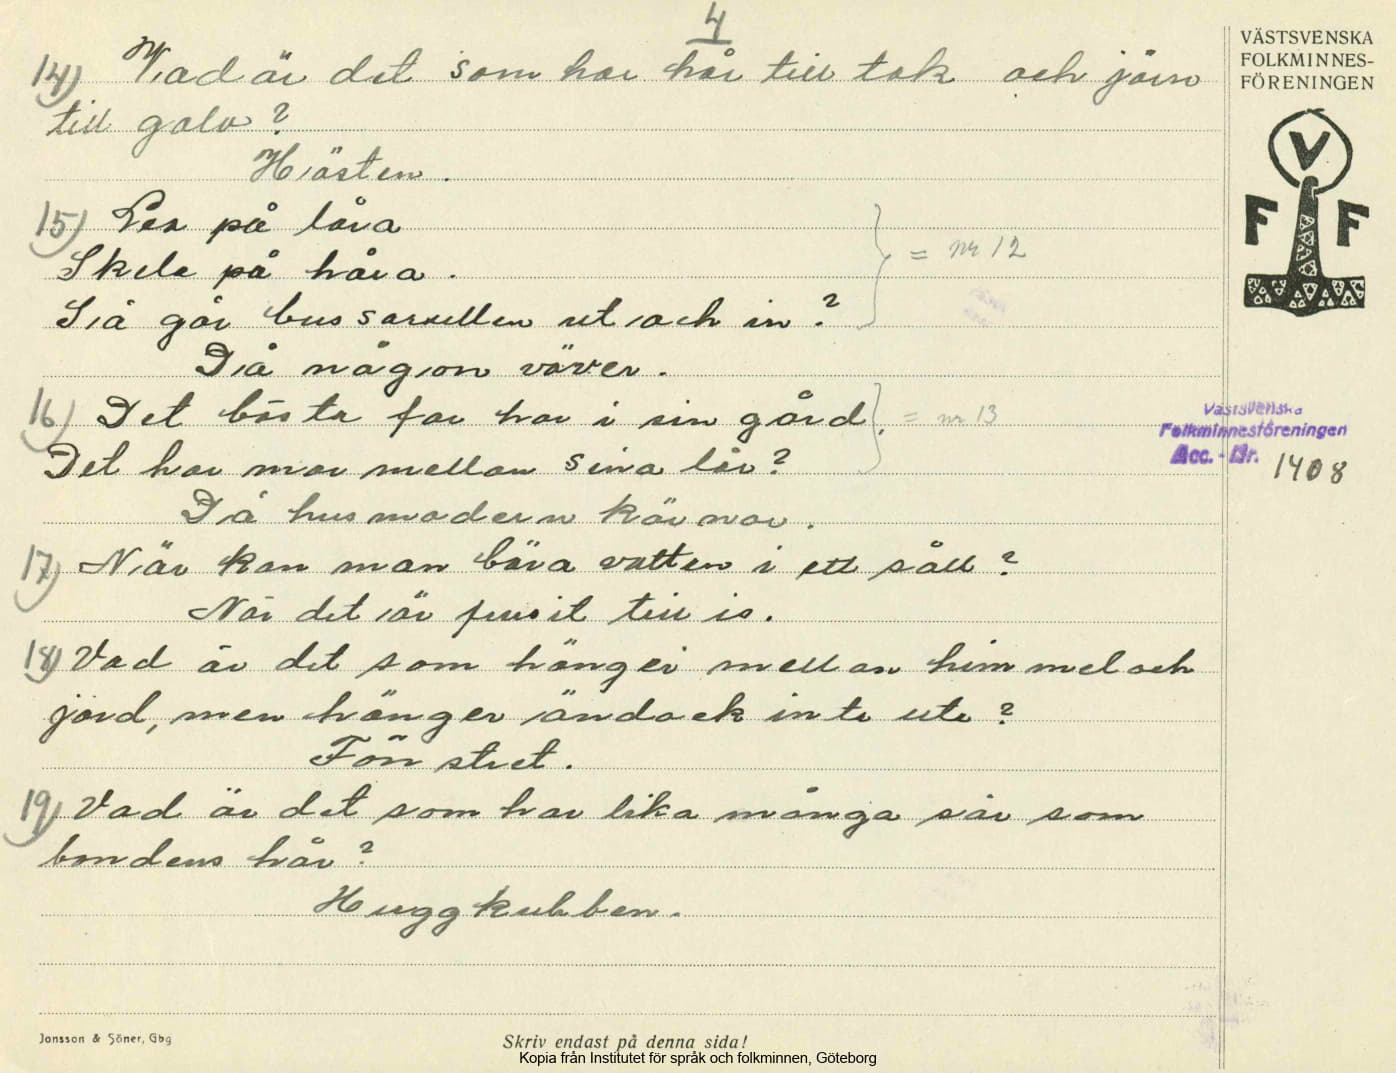 4
14) Vad är det som har hår till tak och järn
till golv?
Hästen.
15) Ler på låra
Skela på håra.
Så går bussarullen ut och in?
Då någon väver.
= nr 12
16) Det bästa far har i sin gård,
Det har mor mellan sina lår?
Då husmodern kärnar.
= nr 13
17) När kan man bära vatten i ett såll?
När det är frusit till is.
18) Vad är det som hänger mellan himmel och
jord, men hänger ändock inte ute?
Fönstret.
19) Vad är det som har lika många sår som
bondens hår?
Huggkubben.
VÄSTSVENSKA
FOLKMINNES-
FÖRENINGEN
V
F F
Västsvenska
Folkminnesföreningen
Acc. - Nr. 1408
Jonsson & Söner, Gbg
Skriv endast på denna sida!
Kopia från Institutet för språk och folkminnen, Göteborg